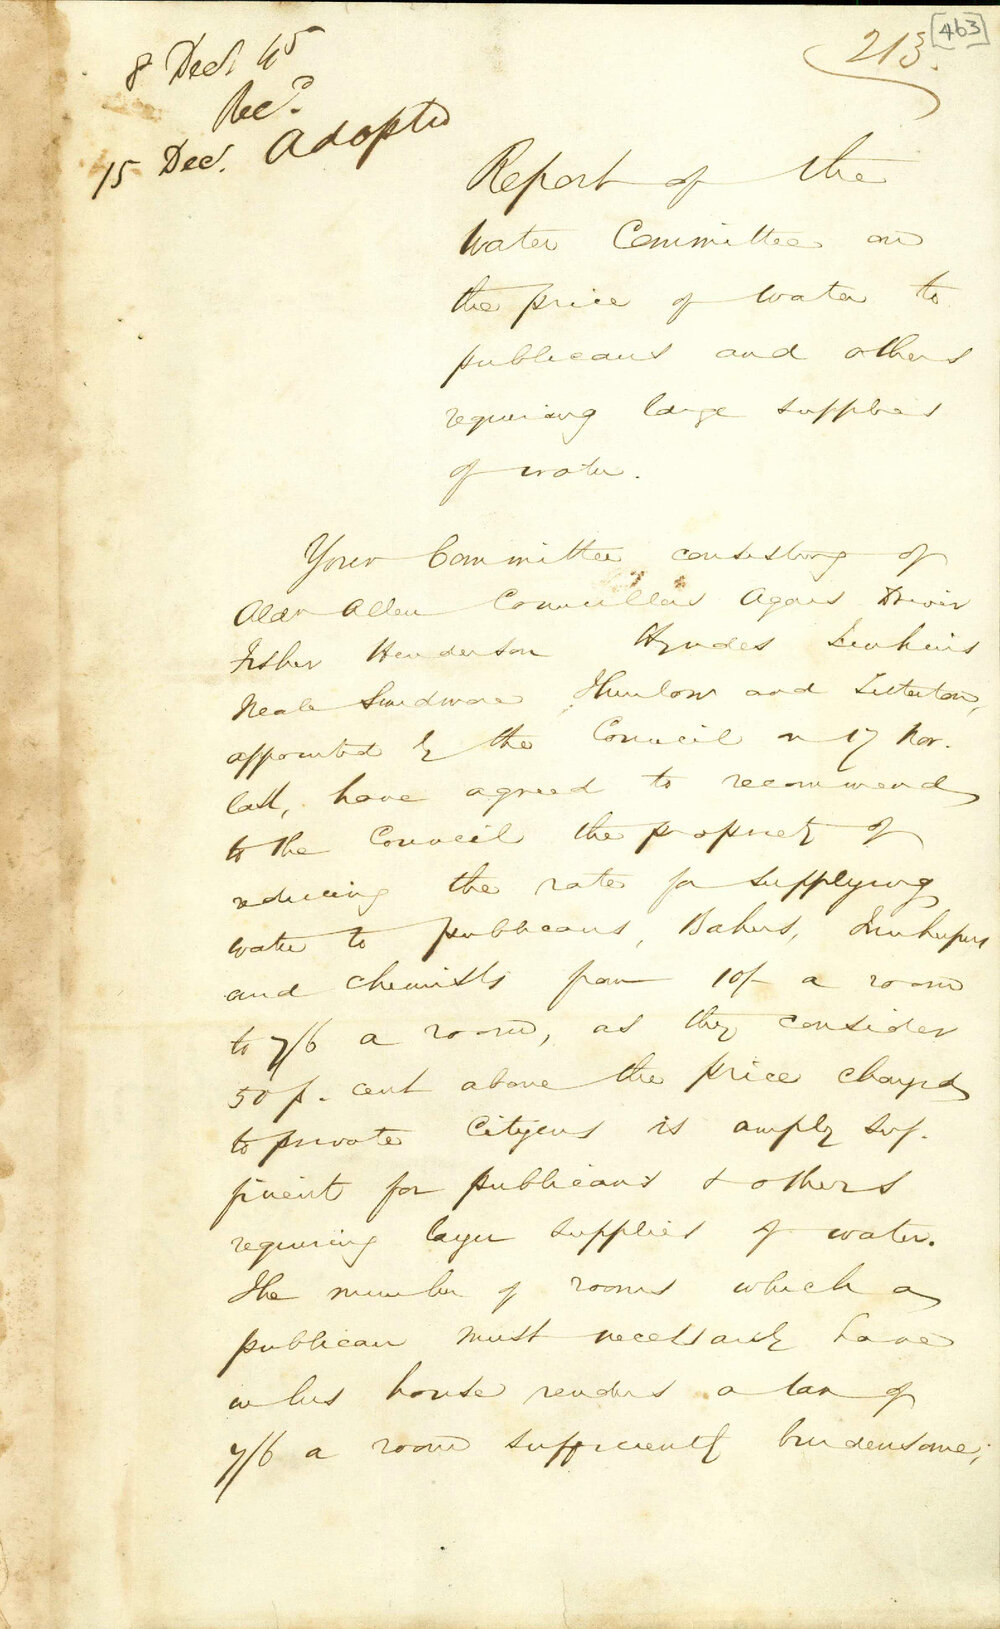 [463]
213.
8 Decr 45
Recd.
15 Decr. Adopted
Report of the
Water Committee on
the price of water to
publicans and others
requiring large supplies
of water.
Your Committee consisting of
Aldn Allen Councillors Agars Driver
Fisher Henderson Hyndes Jenkins
Neale Smidmore Thurlow and Titterton,
appointed by the Council on 17 Nov.
last, have agreed to recommend
to the Council the propriety of
reducing the rate for supplying
water to publicans, Bakers, Innkeepers
and chemists from 10/- a room
to 7/6 a room, as they consider
50 p. cent above the price charged
to private Citizens is amply suf-
ficient for publicans & others
requiring larger supplies of water.
The number of rooms which a
publican must necessarily have
in his house renders a tax of
7/6 a room sufficiently burdensome;